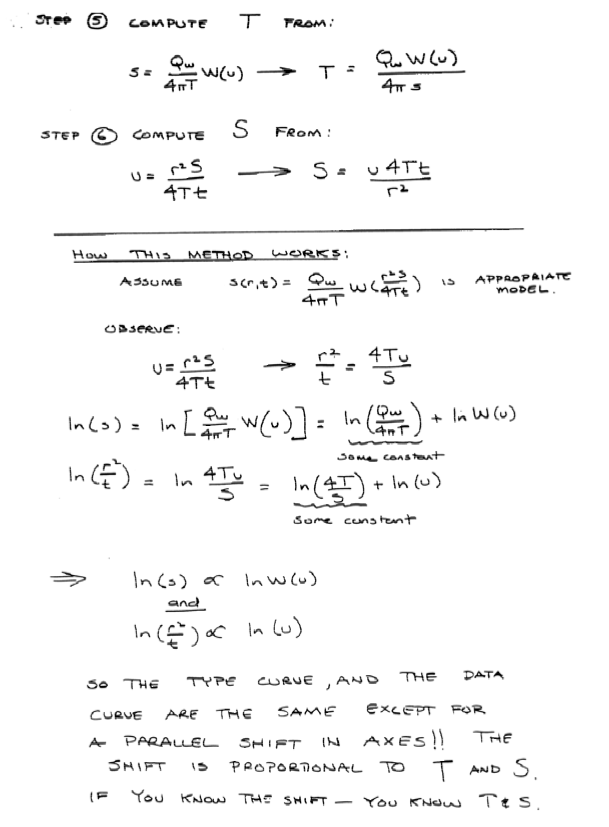 STEP ⑤ COMPUTE T FROM:
s = Qw/4πT W(u) → T = Qw W(u)/4π s
STEP ⑥ COMPUTE S FROM:
u = r²S/4Tt → S = u 4Tt/r²
HOW THIS METHOD WORKS:
ASSUME s(r,t) = Qw/4πT W(r²S/4Tt) IS APPROPRIATE MODEL.
OBSERVE:
u = r²S/4Tt → r²/t = 4Tu/S
ln(s) = ln[Qw/4πT W(u)] = ln(Qw/4πT) + ln W(u)
some constant
ln(r²/t) = ln 4Tu/S = ln(4T/S) + ln(u)
some constant
⇒ ln(s) ∝ ln W(u)
and
ln(r²/t) ∝ ln(u)
SO THE TYPE CURVE, AND THE DATA
CURVE ARE THE SAME EXCEPT FOR
A PARALLEL SHIFT IN AXES!! THE
SHIFT IS PROPORTIONAL TO T AND S.
IF YOU KNOW THE SHIFT — YOU KNOW T & S.